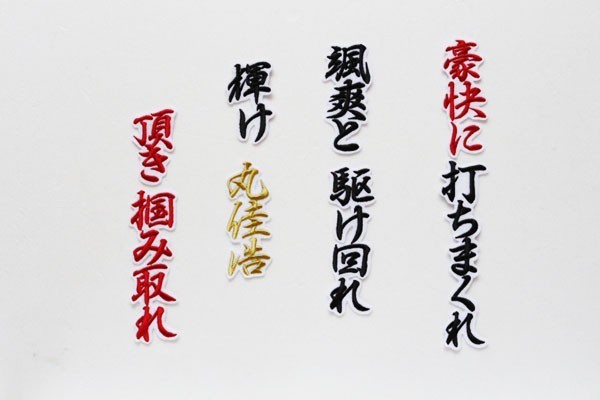 豪快に 打ちまくれ
颯爽と 駆け回れ
輝け 丸佳浩
頂き 掴み取れ